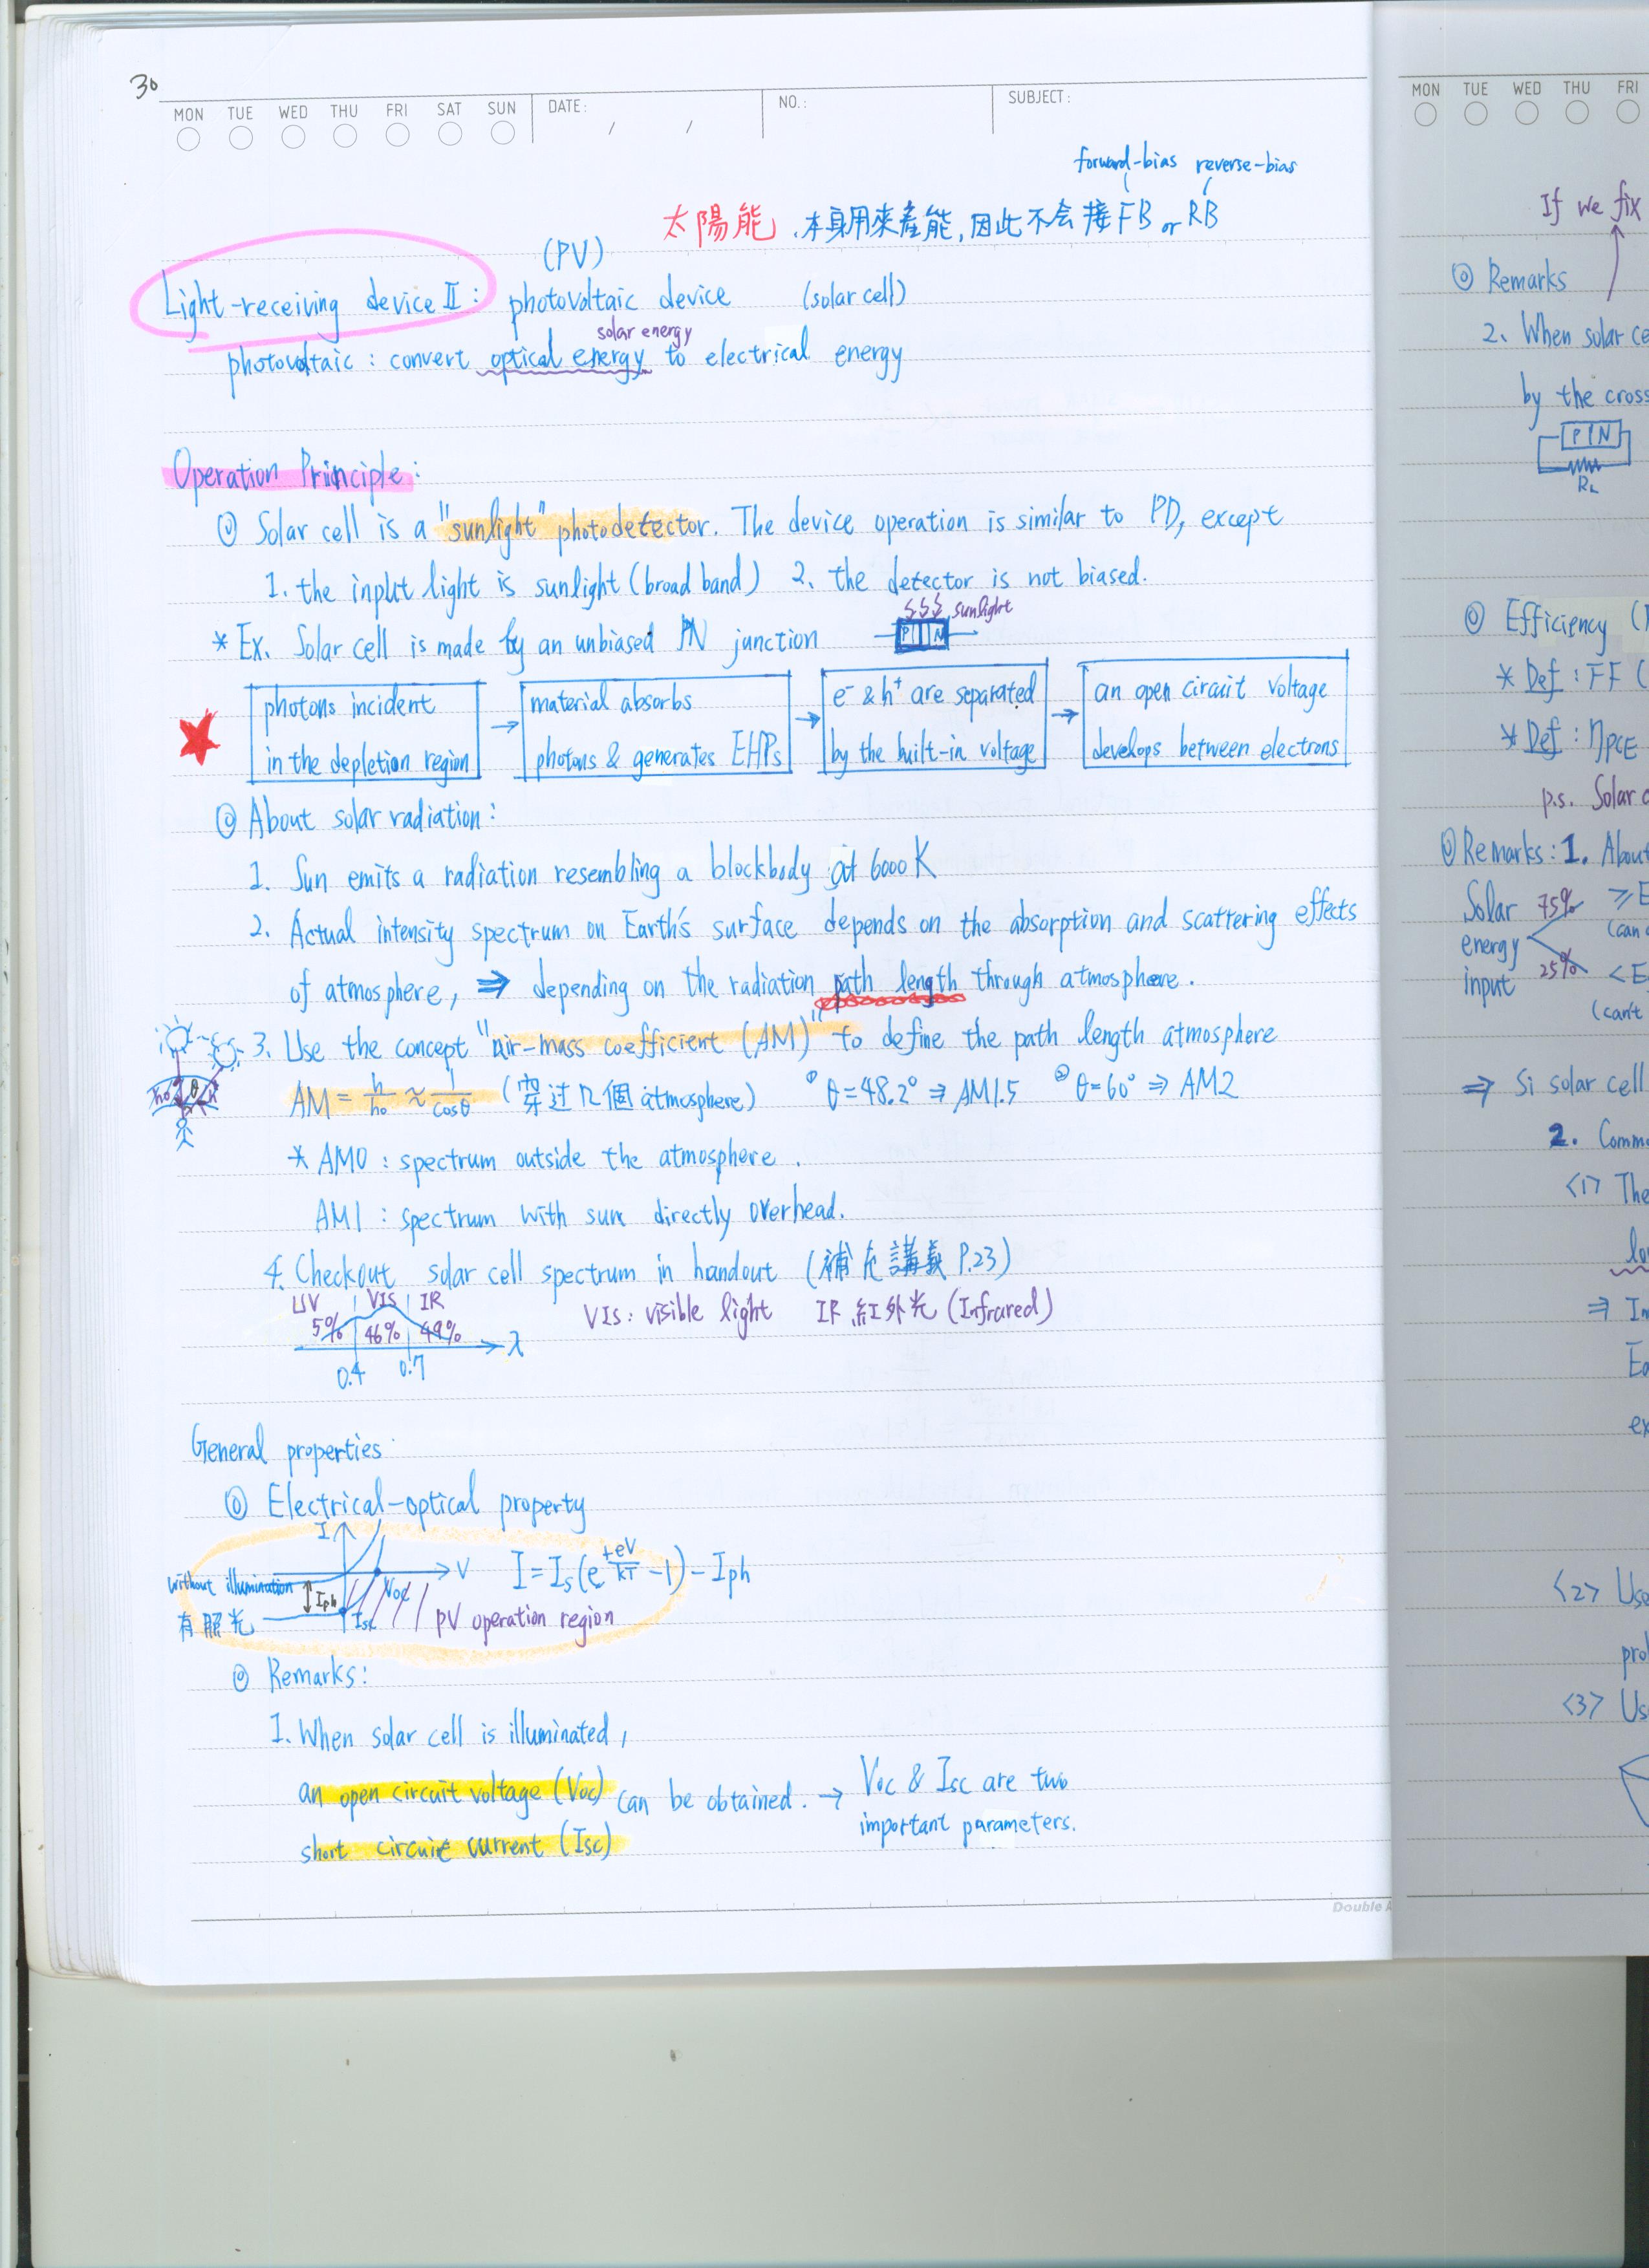 30
MON TUE WED THU FRI SAT SUN DATE: / / NO.: SUBJECT:
forward-bias reverse-bias
太陽能、本身用來產能,因此不会接FB or RB
(PV)
Light-receiving device II: photovoltaic device (solar cell)
solar energy
photovoltaic : convert optical energy to electrical energy
Operation Principle:
◎ Solar cell is a "sunlight" photodetector. The device operation is similar to PD, except
1. the input light is sunlight (broad band) 2. the detector is not biased.
sunlight
* Ex. Solar cell is made by an unbiased PN junction P N
photons incident
in the depletion region
→ material absorbs
photons & generates EHPs
→ e⁻ & h⁺ are separated
by the built-in voltage
→ an open circuit voltage
develops between electrons
◎ About solar radiation:
1. Sun emits a radiation resembling a blockbody at 6000 K
2. Actual intensity spectrum on Earth's surface depends on the absorption and scattering effects
of atmosphere, ⇒ depending on the radiation path length through atmosphere.
3. Use the concept "air-mass coefficient (AM)" to define the path length atmosphere
h₀ θ h
AM = h/h₀ ≈ 1/cosθ (穿过几個 atmosphere) ① θ=48.2° ⇒ AM1.5 ② θ=60° ⇒ AM2
* AM0 : spectrum outside the atmosphere.
AM1 : spectrum with sun directly overhead.
4. Checkout solar cell spectrum in handout (補充講義 P.23)
UV | VIS | IR
5% 46% 49% λ
0.4 0.7
VIS: visible light IR 紅外光 (Infrared)
General properties:
◎ Electrical-optical property
I
V
without illumination
Iph Voc
有照光 Isc PV operation region
I = Is(e^(+eV/kT) -1) - Iph
◎ Remarks:
1. When solar cell is illuminated,
an open circuit voltage (Voc) can be obtained. → Voc & Isc are two
important parameters.
short circuit current (Isc)
Double A
MON TUE WED THU FRI
If we fix
◎ Remarks
2. When solar ce
by the cross
P|N
RL
◎ Efficiency (
* Def : FF (
* Def : ηPCE
p.s. Solar
◎ Remarks: 1. About
Solar 75% ≥E
energy (can
input 25% <E
(can't
⇒ Si solar cell
2. Comm
<1> The
lo
⇒ In
Ea
ex
<2> Use
pro
<3> Us